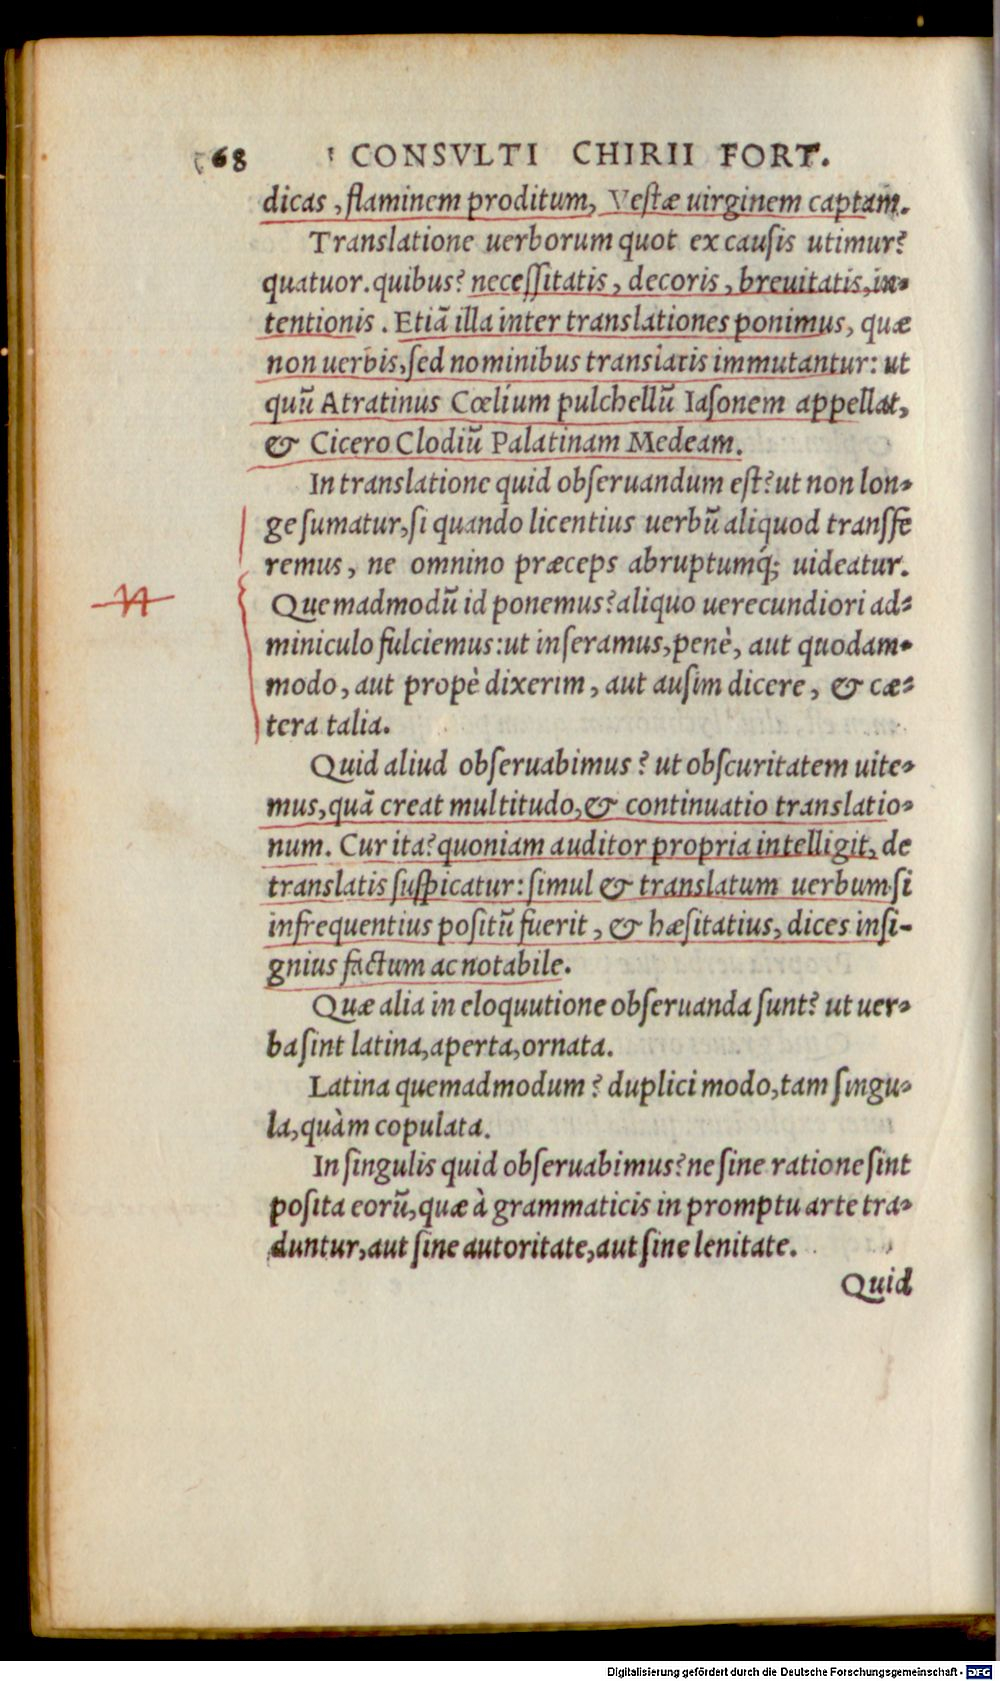 68 CONSVLTI CHIRII FORT.
dicas, flaminem proditum, Vestæ uirginem captam.
Translatione uerborum quot ex causis utimur?
quatuor. quibus? necessitatis, decoris, breuitatis, in-
tentionis. Etiã illa inter translationes ponimus, quæ
non uerbis, sed nominibus translatis immutantur: ut
quũ Atratinus Cœlium pulchellũ Iasonem appellat,
& Cicero Clodiũ Palatinam Medeam.
In translatione quid obseruandum est? ut non lon-
ge sumatur, si quando licentius uerbũ aliquod transfe
remus, ne omnino præceps abruptumq́; uideatur.
Quemadmodũ id ponemus? aliquo uerecundiori ad-
miniculo fulciemus: ut inseramus, penè, aut quodam-
modo, aut propè dixerim, aut ausim dicere, & cæ-
tera talia.
Quid aliud obseruabimus? ut obscuritatem uite-
mus, quã creat multitudo, & continuatio translatio-
num. Cur ita? quoniam auditor propria intelligit, de
translatis suspicatur: simul & translatum uerbum si
infrequentius positũ fuerit, & hæsitatius, dices insi-
gnius factum ac notabile.
Quæ alia in eloquutione obseruanda sunt? ut uer-
ba sint latina, aperta, ornata.
Latina quemadmodum? duplici modo, tam singu-
la, quàm copulata.
In singulis quid obseruabimus? ne sine ratione sint
posita eorũ, quæ à grammaticis in promptu arte tra-
duntur, aut sine autoritate, aut sine lenitate.
Quid
Digitalisierung gefördert durch die Deutsche Forschungsgemeinschaft - DFG